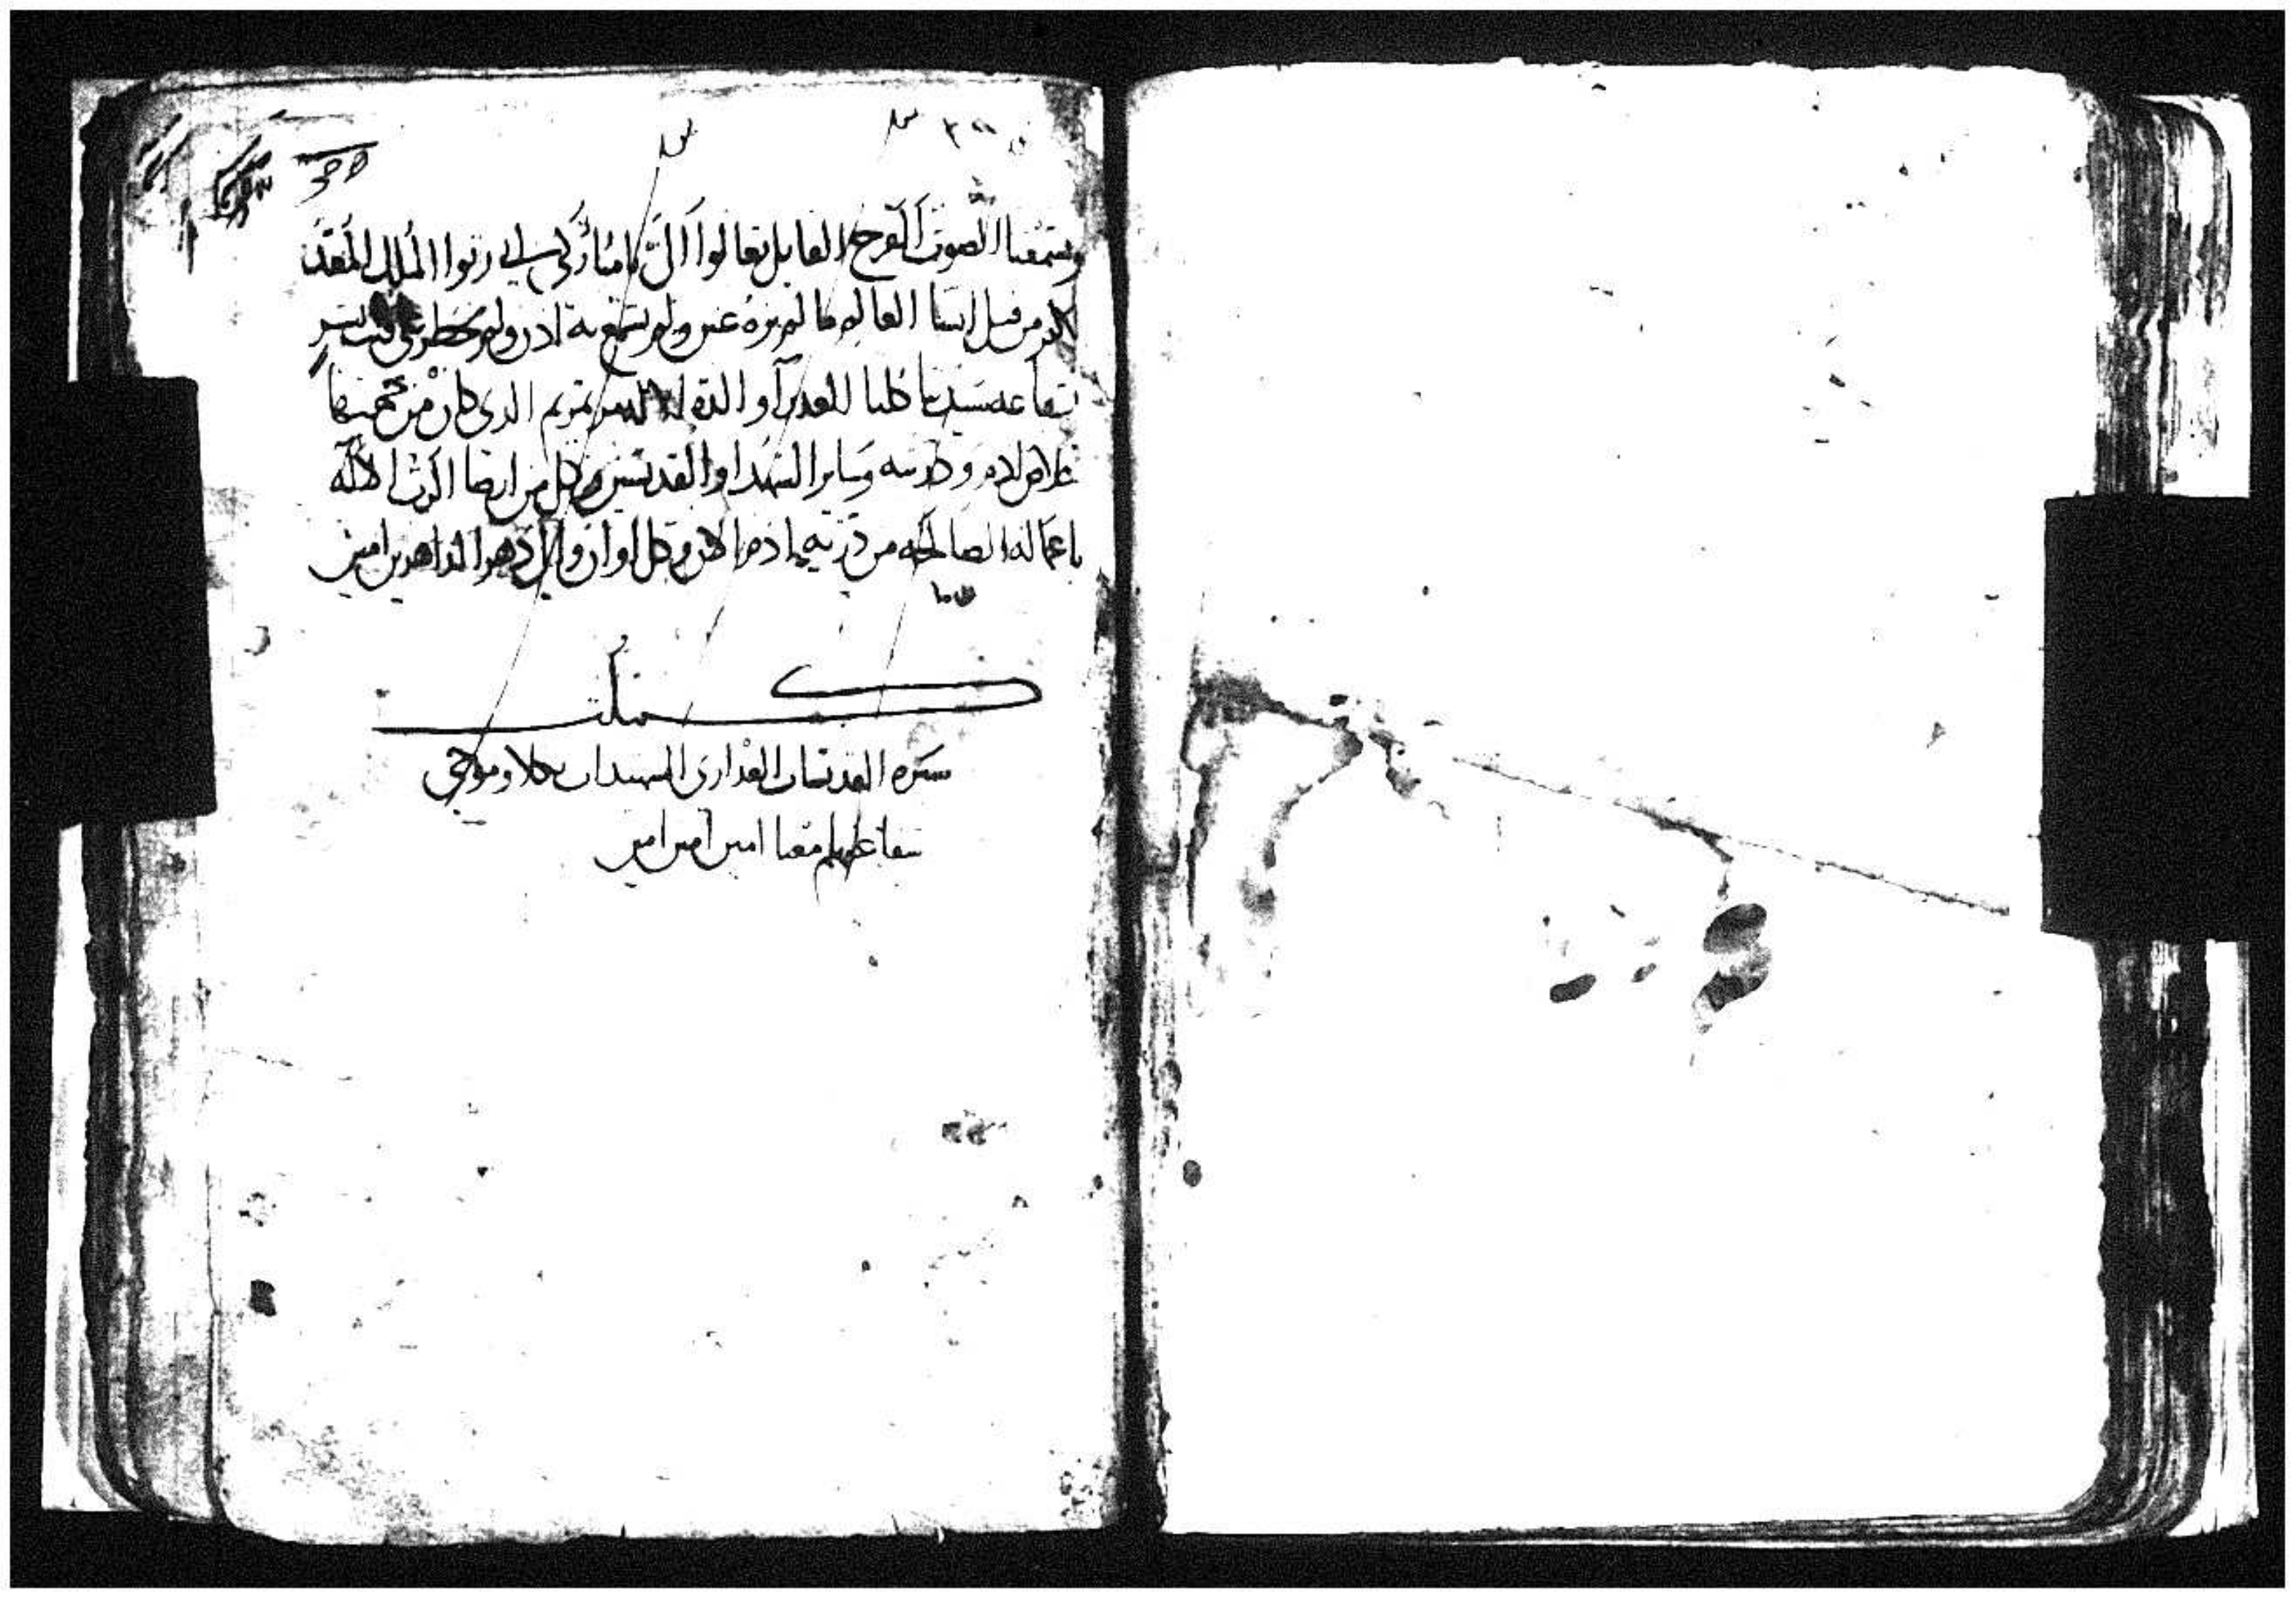 ويسمعنا الصوت الفرح القايل تعالوا الي يا مباركي ابي رثوا الملك المعد
لكم من قبل انشا العالم ما لم تره عين ولم تسمع به اذن ولم يخطر علي قلب بشر
بشفاعة سيدتنا كلنا العدرا والدة الاله مريم الدي كان من
خلاص ادم و وساير الشهدا والقديسين وكل من ارضا الرب الاله
باعماله الصالحه من درية ادم الان وكل اوان والي دهر الداهرين امين
كملت
سيرة القديسات العدارى الشهيدات
شفاعتهم معنا امين امين امين